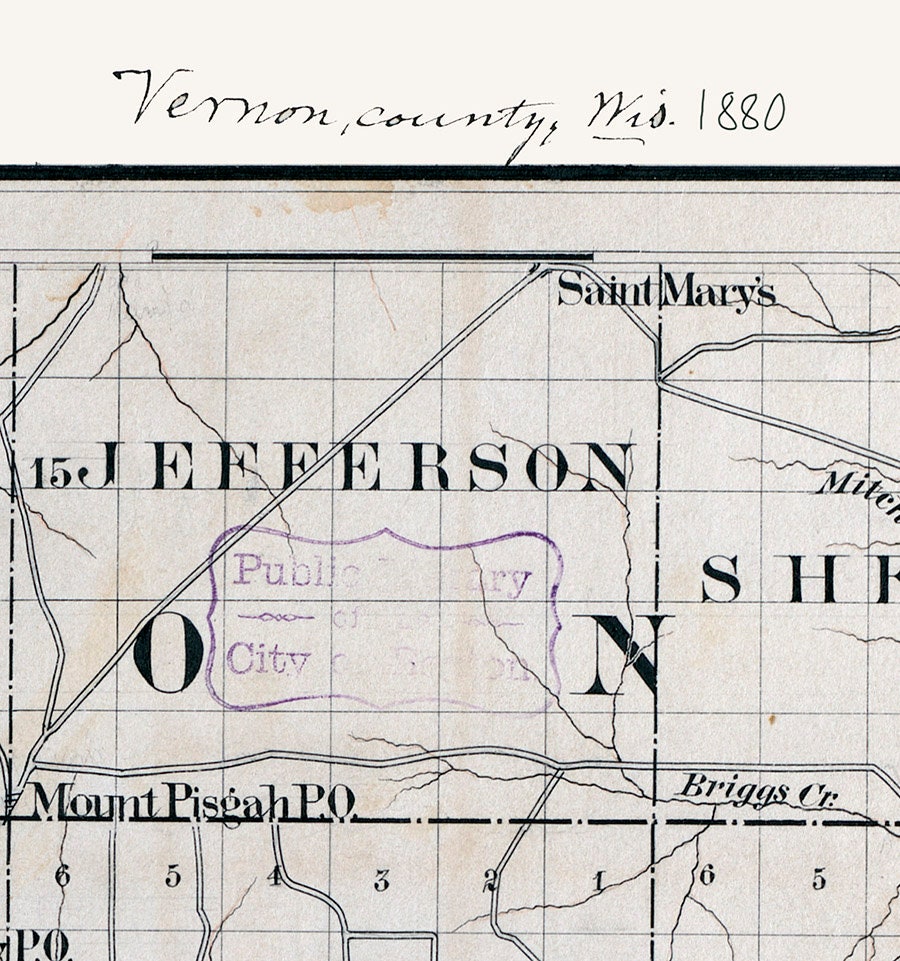 Vernon, county, Wis. 1880
Saint Mary's
15 JEFFERSON
Mitch
Public
SHE
O N
of
City
Briggs Cr.
Mount Pisgah P.O.
6 5 4 3 2 1 6 5
P.O.